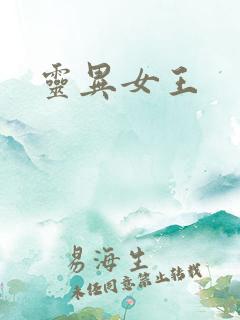 靈異女王
易海生
未經同意禁止轉載